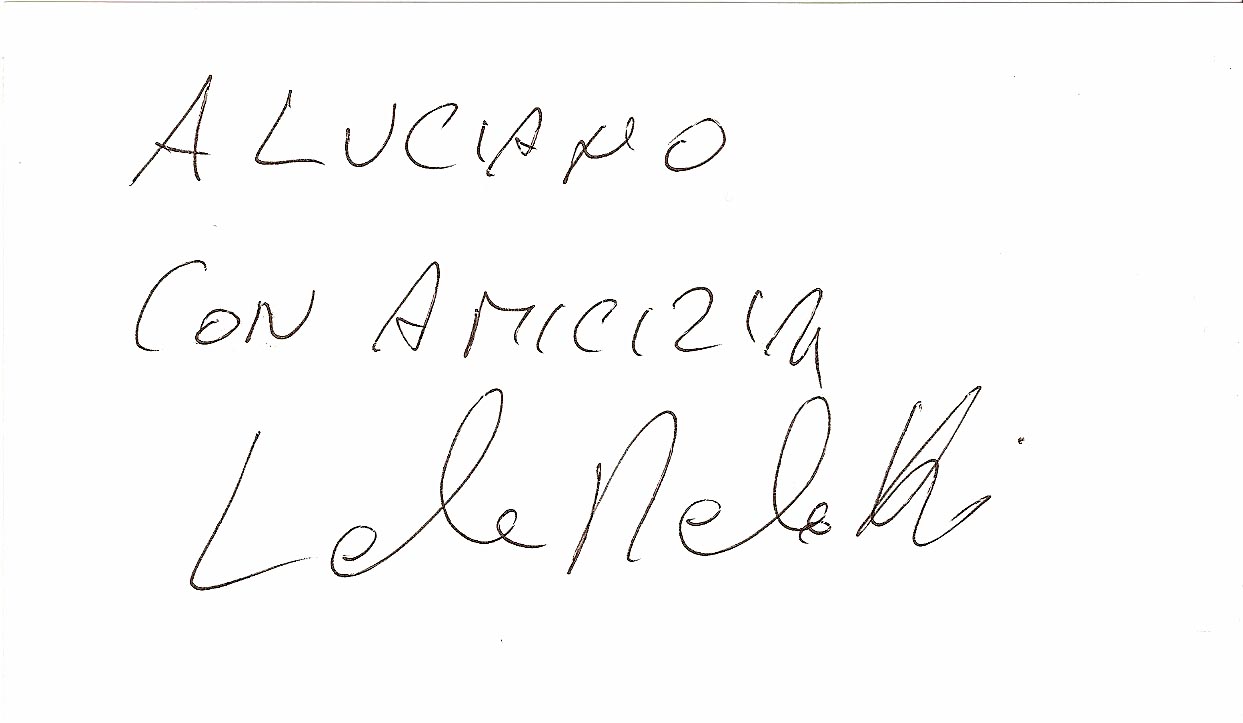 A LUCIANO
CON AMICIZIA
Lele